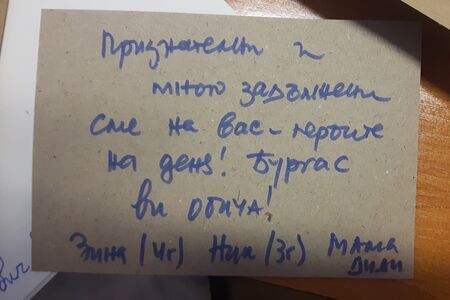 Признателни и
много задължени
сме на вас - героите
на деня! Бургас
ви обича!
Зина (4г) Ния (3г) Мама
Диди